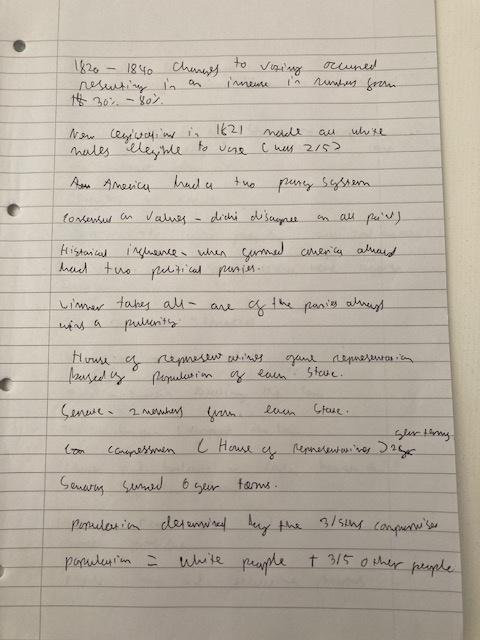 1820 - 1840 changes to voting occurred
resulting in an increase in numbers from
30% - 80%.
New legislation in 1821 made all white
males elegible to vote (was 2/5)
America had a two party system
consensus on values - didnt disagree on all points
Historical influence - when formed america already
had two political parties.
winner takes all - one of the parties always
wins a pulurity.
House of representatives gave representation
based of population of each state.
Senate - 2 members from each state.
congressmen (House of representatives) 2 year terms
Senators served 6 year terms.
population determined by the 3/5ths compromise
population = white people + 3/5 other people